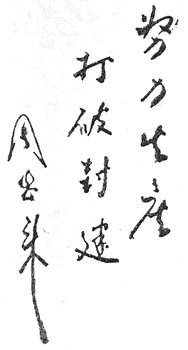 努力生產
打破封建
周恩来